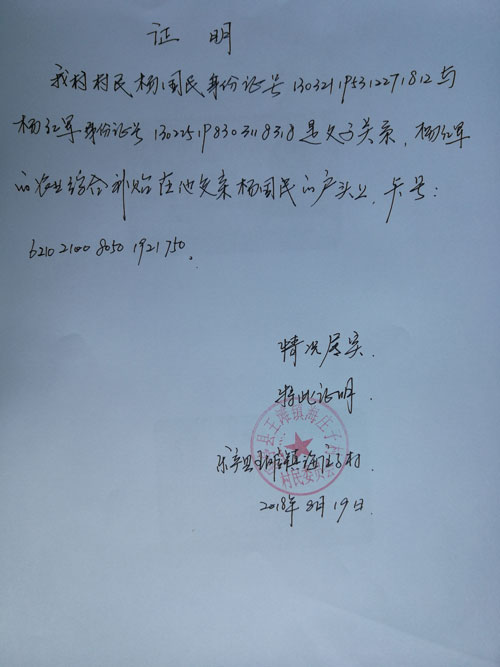 证 明
我村村民杨国民身份证号130321195312271812与
杨红军身份证号130225198303118318是父子关系,杨红军
的农业综合补贴在他父亲杨国民的户头上,卡号:
6210 2100 8050 1921 750。
情况属实.
特此证明
乐亭县王滩镇海庄子村.
2018年8月19日.
县王滩镇海庄子
村民委员会